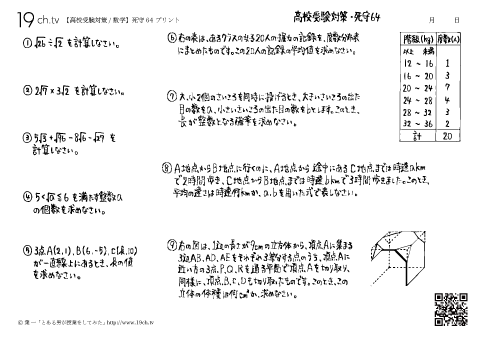 19 ch.tv 【高校受験対策/数学】死守64プリント
高校受験対策・死守64
月 日
① √26÷√2 を計算しなさい。
② 2√7×3√2 を計算しなさい。
③ 5√3+√96-8√6-√27 を
計算しなさい。
④ 5<√a≦6 を満たす整数a
の個数を求めなさい。
⑤ 3点A(2,1), B(6,-5), C(k,10)
が一直線上にあるとき、kの値
を求めなさい。
⑥ 右の表は、あるクラスの女子20人の握力の記録を、度数分布表
にまとめたものです。この20人の記録の平均値を求めなさい。
⑦ 大,小2個のさいころを同時に投げるとき、大きいさいころの出た
目の数をa、小さいさいころの出た目の数をbとします。このとき、
が整数となる確率を求めなさい。
⑧ A地点からB地点に行くのに、A地点から途中にあるC地点までは時速akm
で2時間歩き、C地点からB地点までは時速bkmで3時間歩きました。このとき、
平均の速さは時速何kmか、a,bを用いた式で表しなさい。
⑨ 右の図は、1辺の長さが9cmの立方体から、頂点Aに集まる
3辺AB, AD, AEをそれぞれ3等分する点のうち、頂点Aに
近い方の3点、P,Q,Rを通る平面で頂点Aを切り取り、
同様に、頂点B,C,Dも切り取ったものです。このとき、この
立体の体積は何cm³か、求めなさい。
階級(kg) 度数(人)
以上 未満
12 ~ 16 1
16 ~ 20 3
20 ~ 24 7
24 ~ 28 4
28 ~ 32 3
32 ~ 36 2
計 20
© 葉一「とある男が授業をしてみた」http://www.19ch.tv